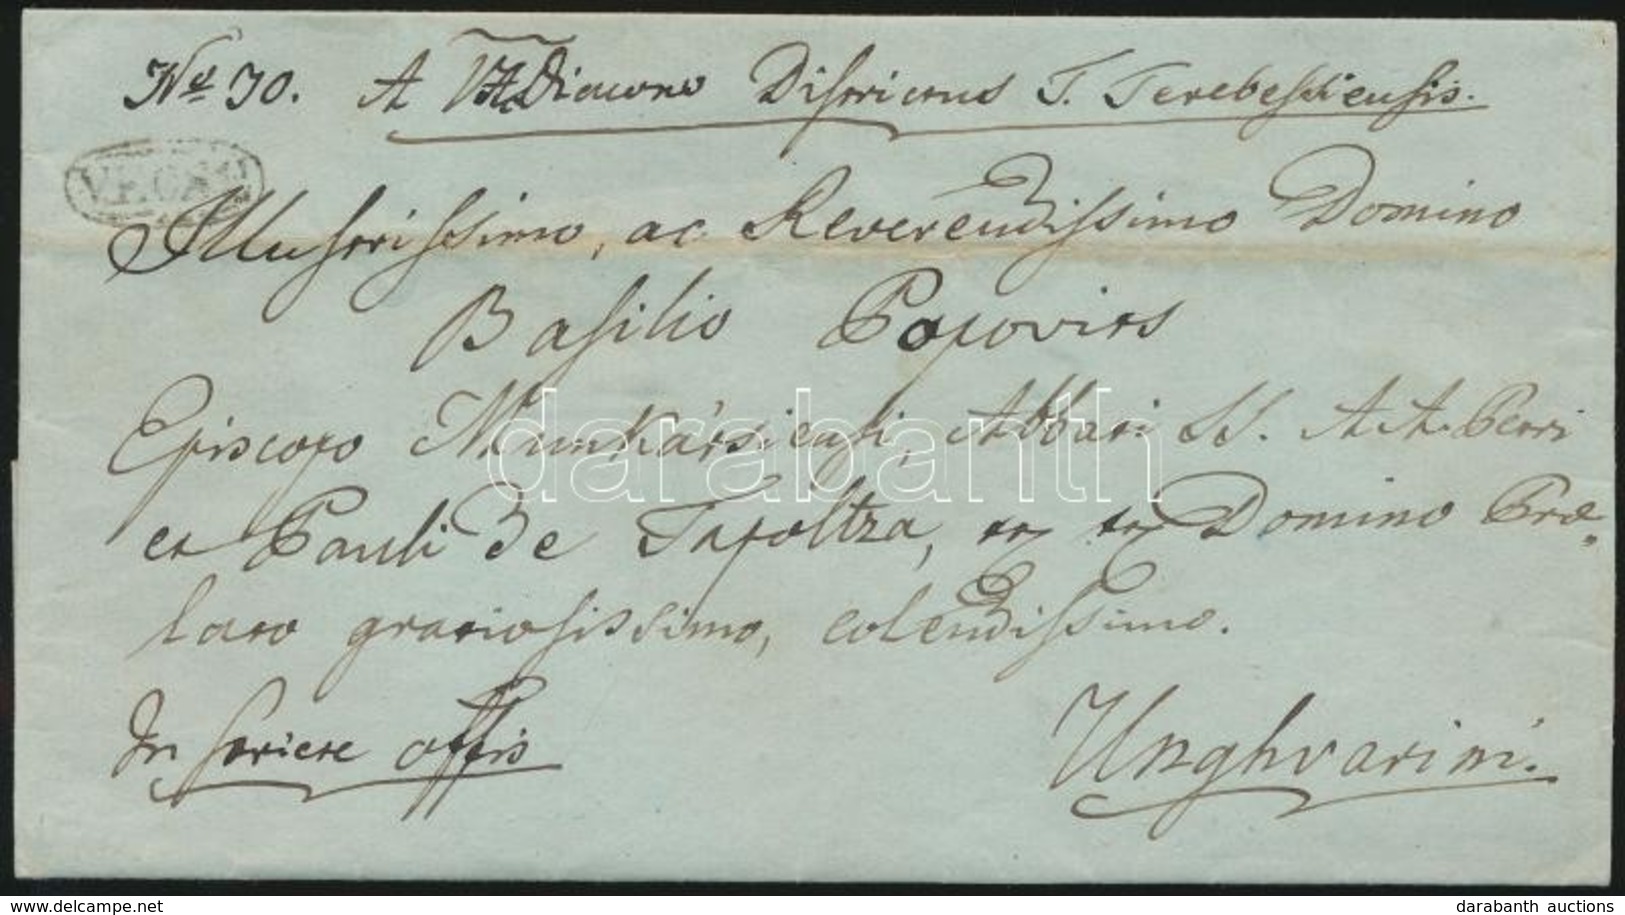 No 30. A V. A. Diacono Districtus T. Terebesiensis.
V. P. CSA
Illustrissimo, ac Reverendissimo Domino
Basilio Popovics
Episcopo Munkácsiensi, Abbati SS. A. A. Petri
et Pauli de Tapoltza, Domino Præ„
lato gratiosissimo, colendissimo.
In serie offis
Unghvarini.
darabanth
www.delcampe.net
darabanth auctions